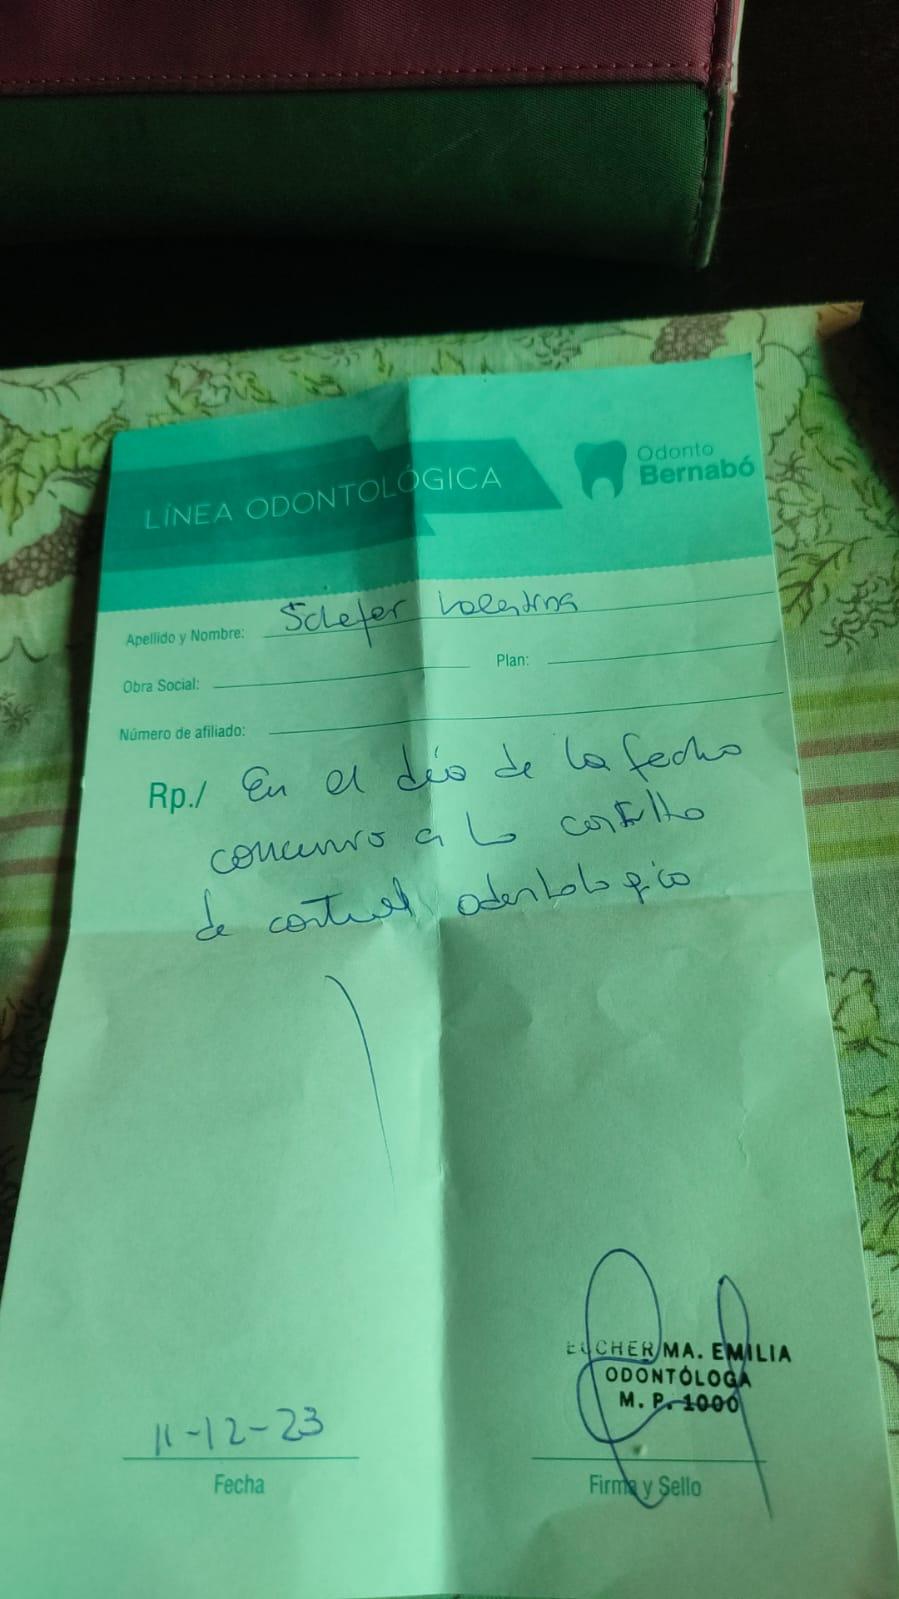 LÍNEA ODONTOLÓGICA
Odonto
Bernabó
Apellido y Nombre: Schefer Valentina
Obra Social:
Plan:
Número de afiliado:
Rp./ En el día de la fecha
concurrió a la consulta
de control odontologico
MA. EMILIA
ODONTÓLOGA
M. P. 1000
11-12-23
Fecha
Firma y Sello